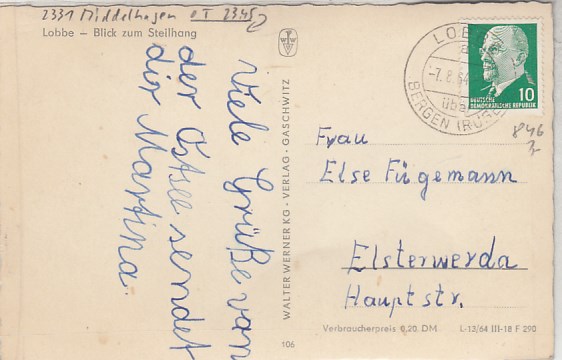 2331 Middelhagen OT 2345
Lobbe – Blick zum Steilhang
Viele Grüße von
der Ostsee sendet
dir Martina.
WALTER WERNER KG - VERLAG - GASCHWITZ
106
-7.8.64
BERGEN (RÜG
10
DEUTSCHE
DEMOKRATISCHE REPUBLIK
846
Frau
Else Fügemann
Elsterwerda
Hauptstr.
Verbraucherpreis 0,20 DM
L-13/64 III-18 F 290